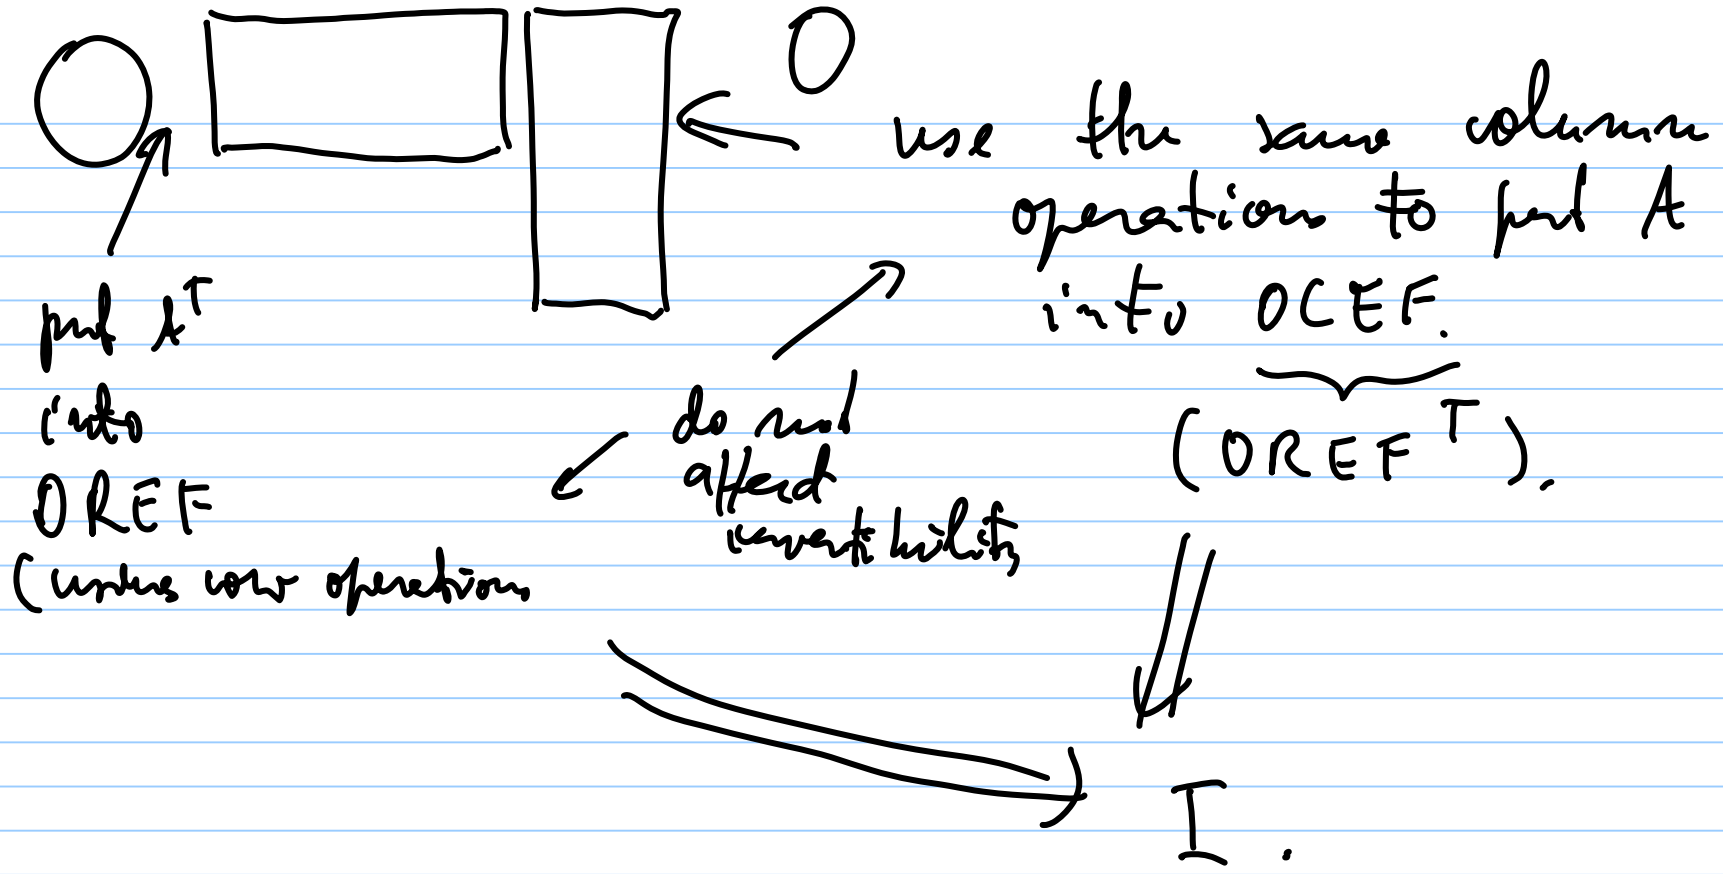 use the same column
operations to put A
into OCEF.
(OREF^T).
put A^T
into
OREF
(using row operations
do not
affect
invertibility
I.